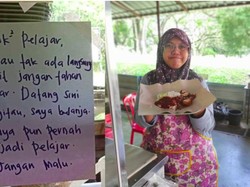 pelajar,
tak ada langsung
jangan tahan
Datang sini
saya belanja.
pun pernah
jadi pelajar.
Jangan malu.